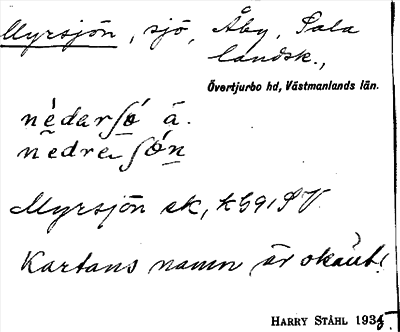 Myrsjön, sjö, Åby, Sala
landsk.,
Övertjurbo hd, Västmanlands län.
nèdarʃó̱ ā.
nedre ʃó̱n
Myrsjön ek, k G91 SV
Kartans namn är okänt!
HARRY STÅHL 1935